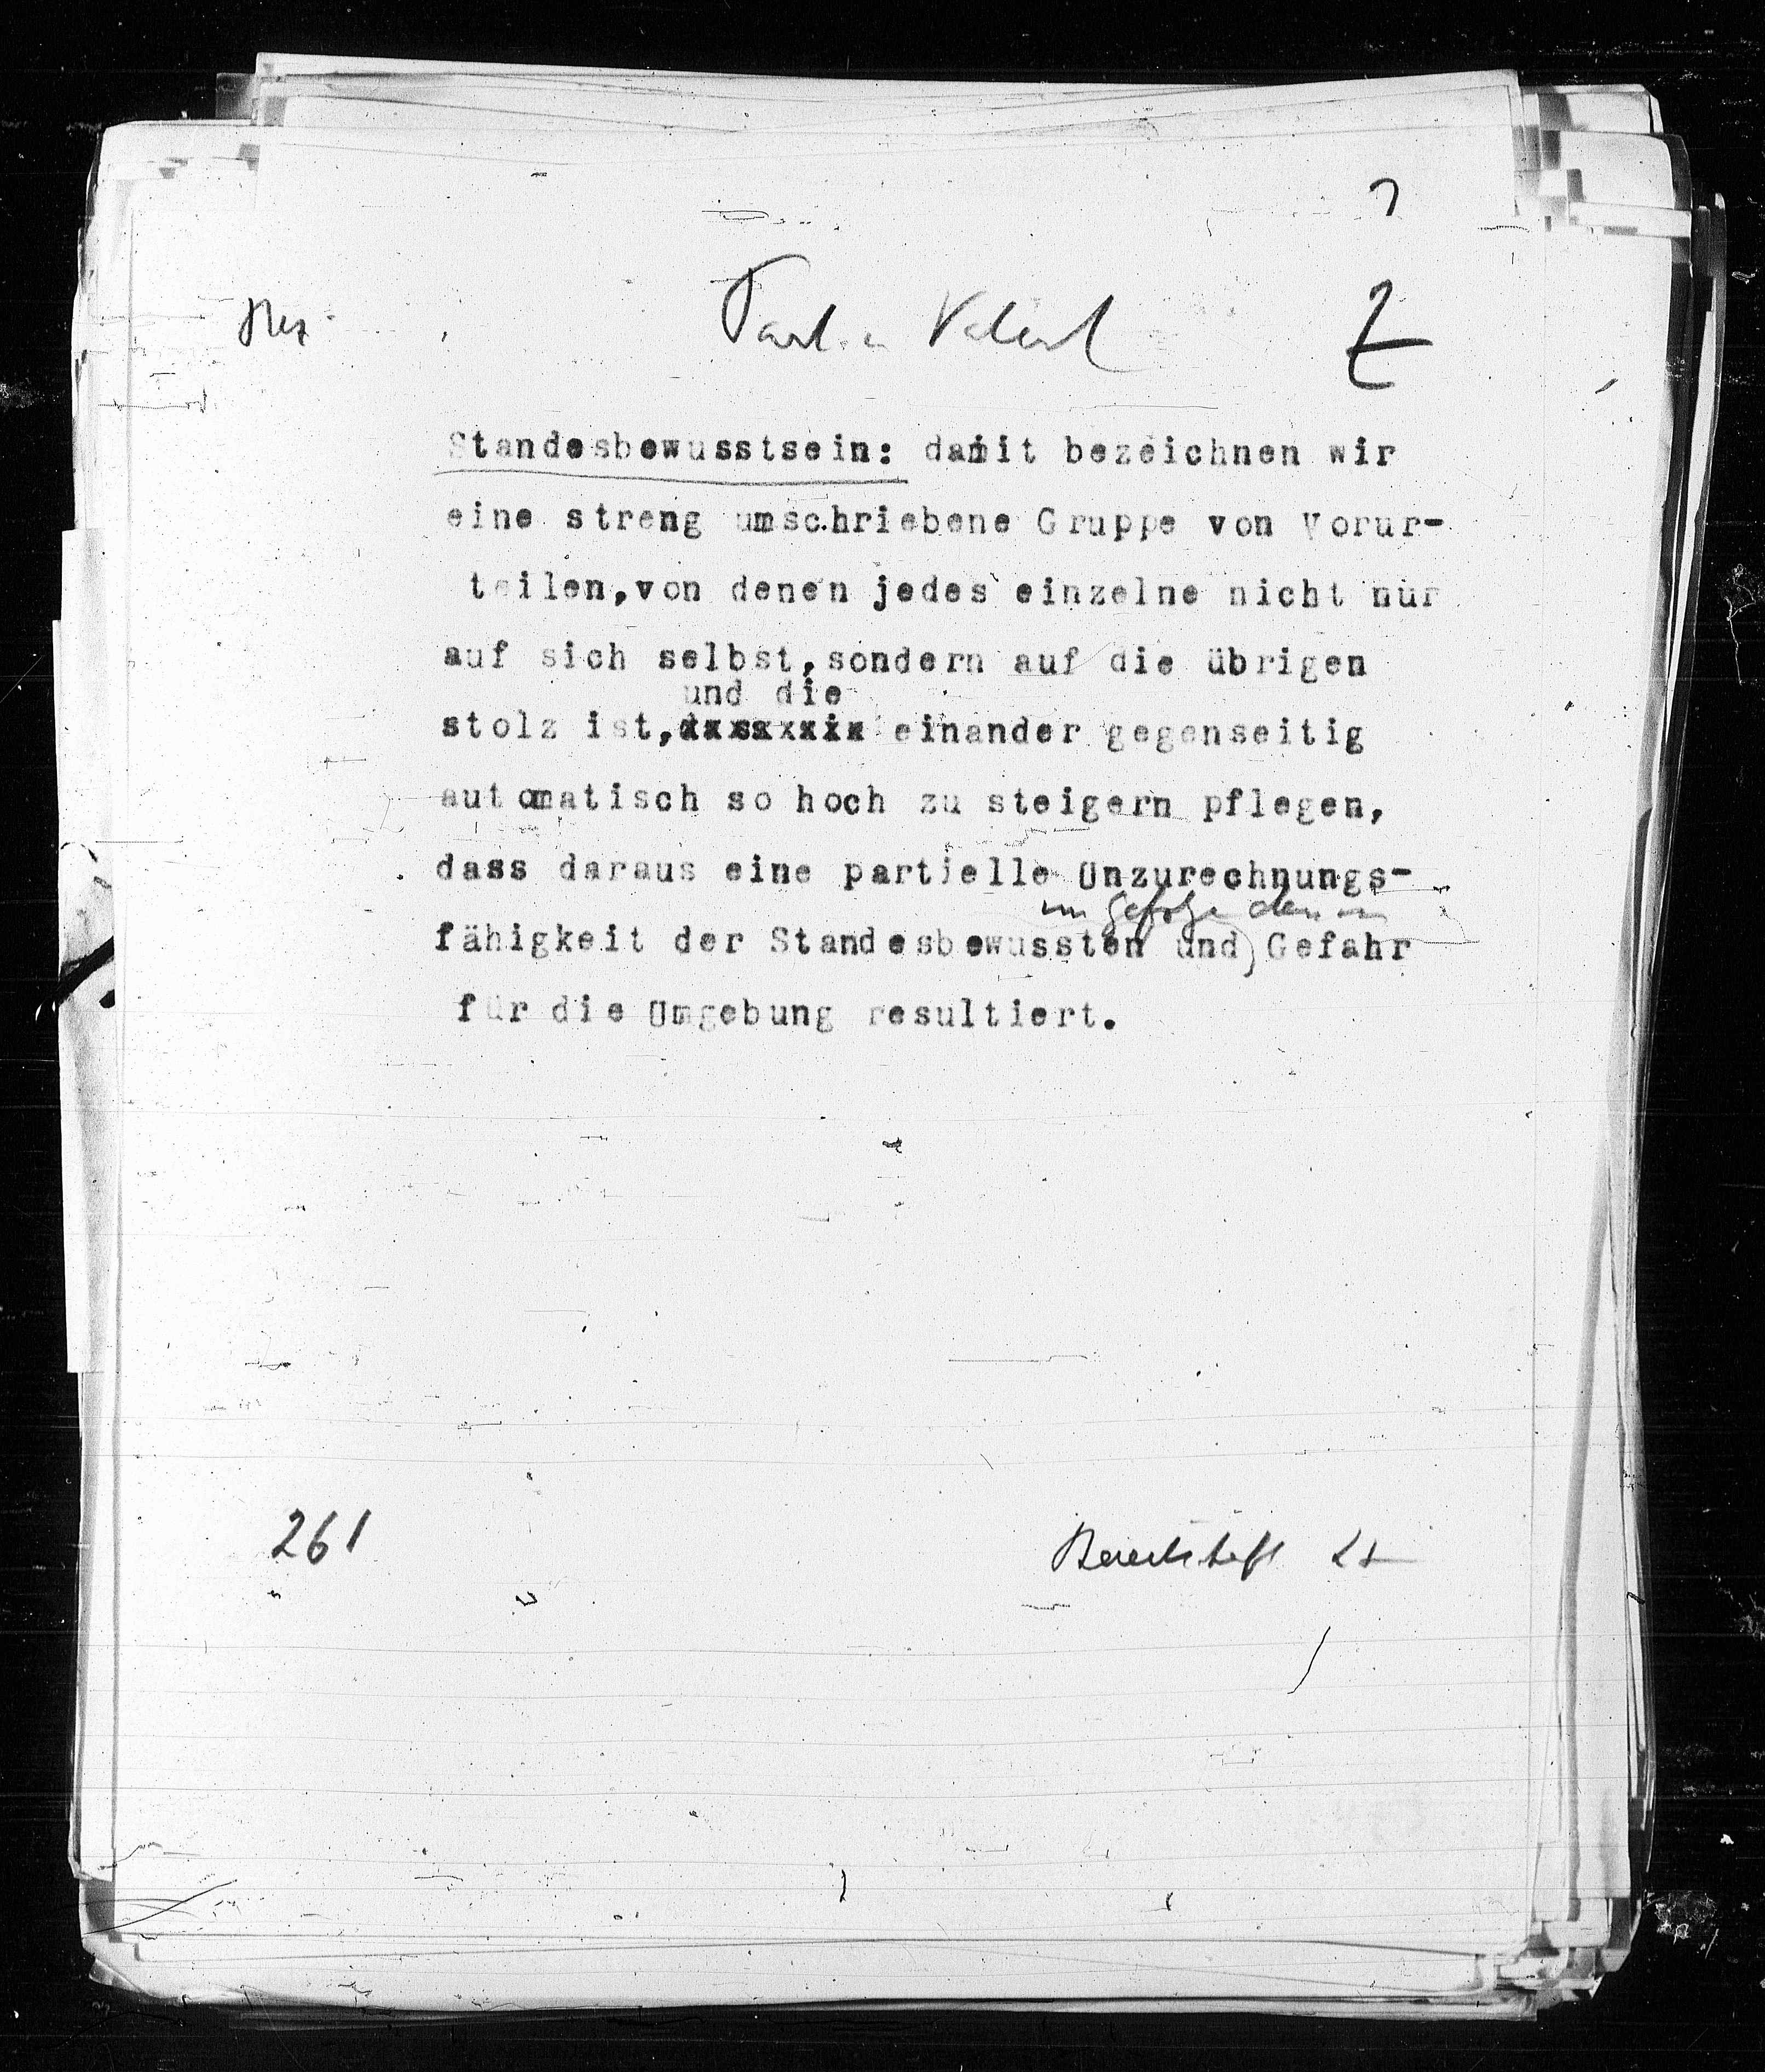 ?
Standesbewusstsein: damit bezeichnen wir
eine streng umschriebene Gruppe von Vorur-
teilen,von denen jedes einzelne nicht nur
auf sich selbst,sondern auf die übrigen
und die
stolz ist, einander gegenseitig
automatisch so hoch zu steigern pflegen,
dass daraus eine partielle Unzurechnungs-
im Gefolge
fähigkeit der Standesbewussten und Gefahr
für die Umgebung resultiert.
261